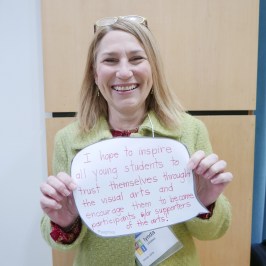 I hope to inspire
all young students to
trust themselves through
the visual arts and
encourage them to become
participants &/or supporters
of the arts!